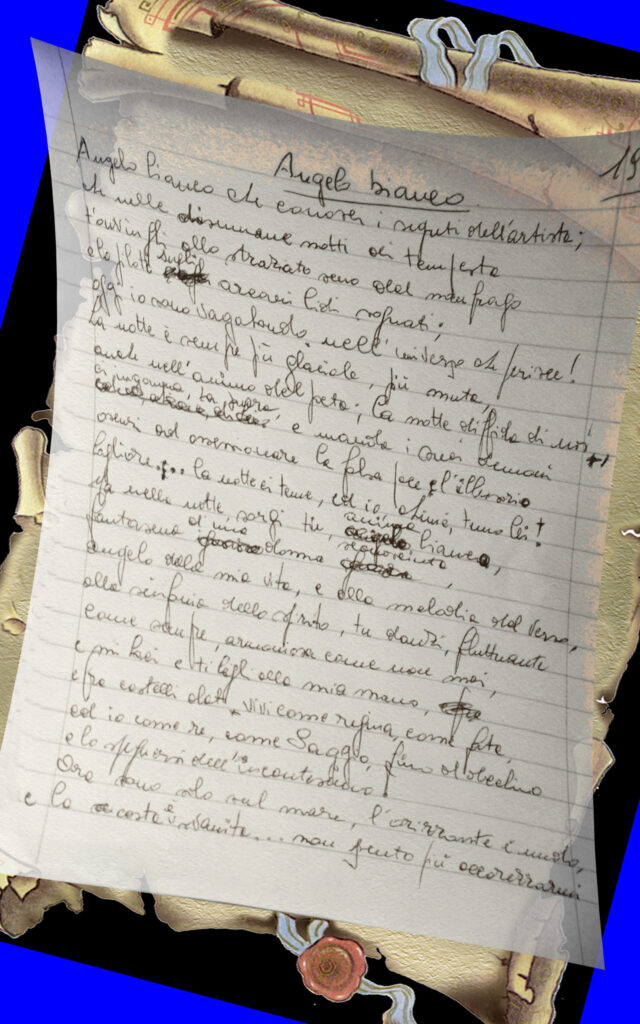 Angelo bianco
19
Angelo bianco che conosci i segreti dell'artista;
che nelle disumane notti di tempesta
t'avvinghi allo straziato seno del naufrago
e lo piloti sugli arcani lidi sognati;
oggi io sono vagabondo nell'universo che ferisce!
La notte è sempre più glaciale, più muta,
anche nell'animo del poeta; la notte diffida di noi
ci inganna, ta, e manda i suoi demoni
oscuri ad osannare la falsa pace e l'illusorio
bagliore... la notte ci teme, ed io, ahimè, temo lei!
Ma nella notte, sorgi tu, anima bianca,
fantasma d'una donna
angelo della mia vita, e alla melodia del verso,
alla sinfonia dello spirito, tu danzi, fluttuante
come sempre, armoniosa come non mai,
e mi baci e ti leghi alla mia mano,
e fra castelli dorati vivi come regina, come fata,
ed io come re, come Saggio, fino al declino
e lo spegnersi dell'incantesimo!
Ora sono solo sul mare, l'orizzonte è muto,
e la costa è svanita... non sento più accarezzarmi